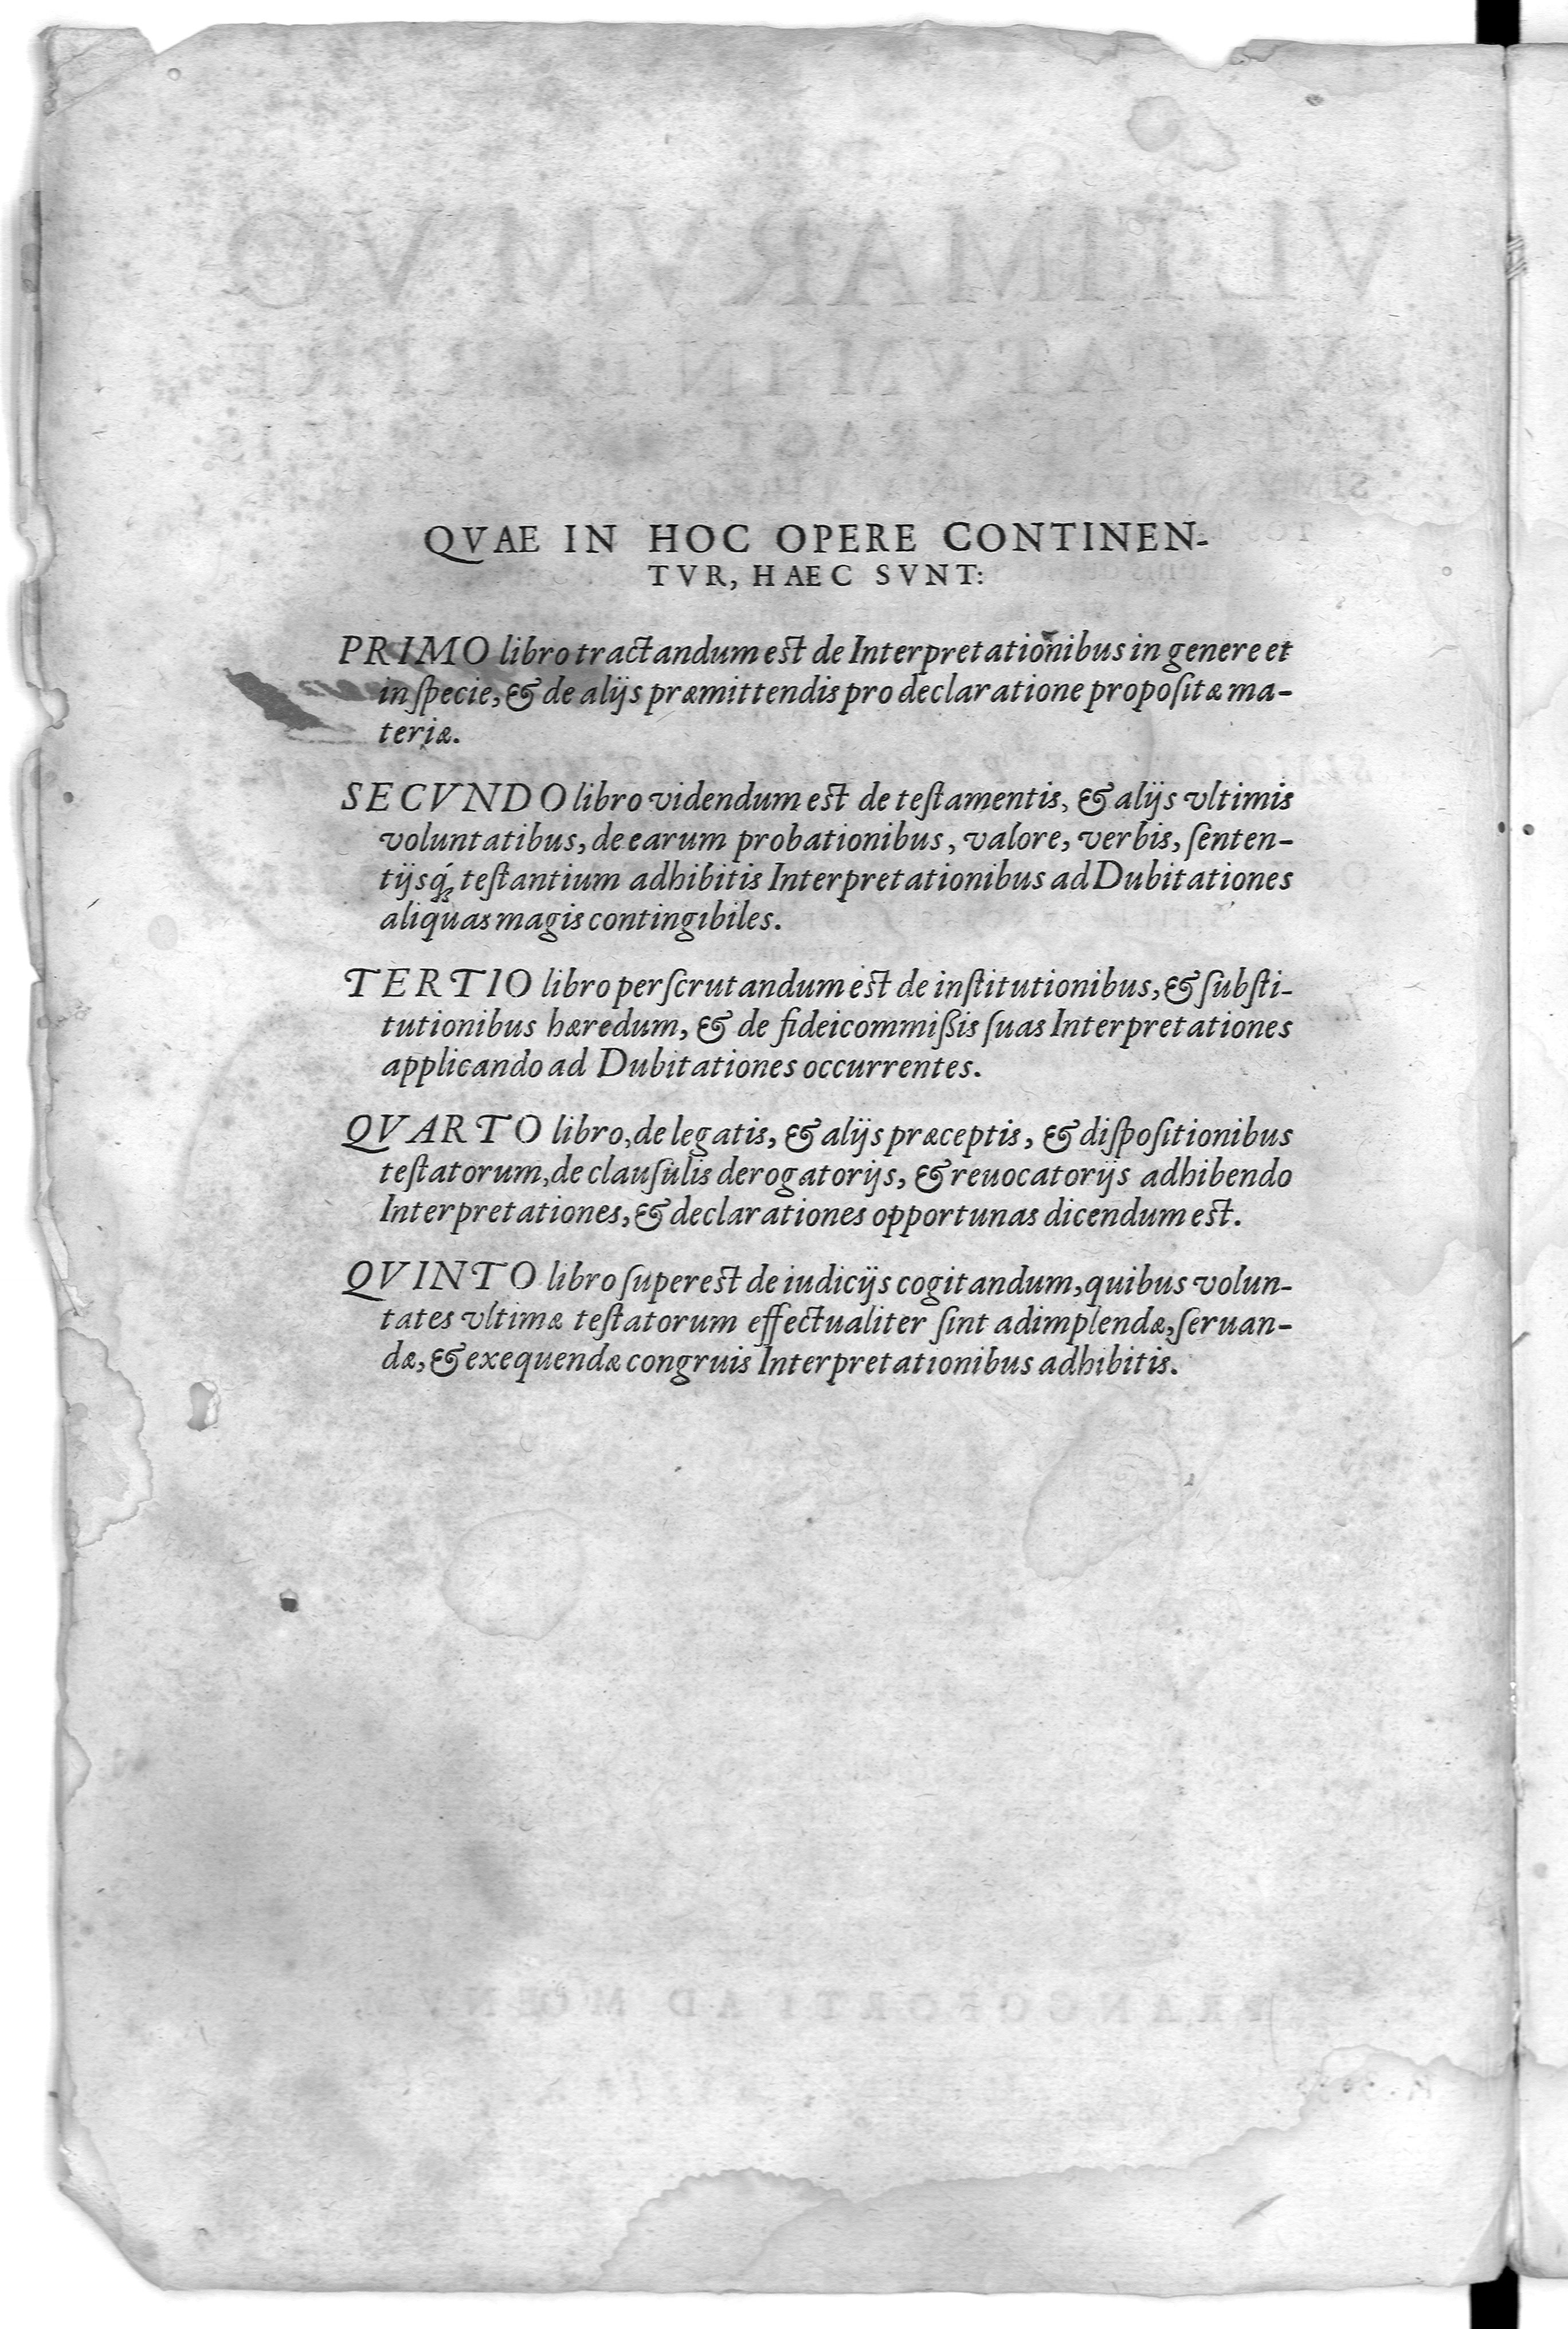 QVAE IN HOC OPERE CONTINEN-
TVR, HAEC SVNT:
PRIMO libro tractandum est de Interpretationibus in genere et
in ſpecie, & de alijs præmittendis pro declaratione propoſitæ ma-
teriæ.
SECVNDO libro videndum est de teſtamentis, & alijs vltimis
voluntatibus, de earum probationibus, valore, verbis, ſenten-
tijsq́; teſtantium adhibitis Interpretationibus ad Dubitationes
aliquas magis contingibiles.
TERTIO libro perſcrutandum est de inſtitutionibus, & ſubſti-
tutionibus hæredum, & de fideicommiſſis ſuas Interpretationes
applicando ad Dubitationes occurrentes.
QVARTO libro, de legatis, & alijs præceptis, & diſpoſitionibus
teſtatorum, de clauſulis derogatorijs, & reuocatorijs adhibendo
Interpretationes, & declarationes opportunas dicendum est.
QVINTO libro ſuperest de iudicijs cogitandum, quibus volun-
tates vltimæ teſtatorum effectualiter ſint adimplendæ, ſeruan-
dæ, & exequendæ congruis Interpretationibus adhibitis.